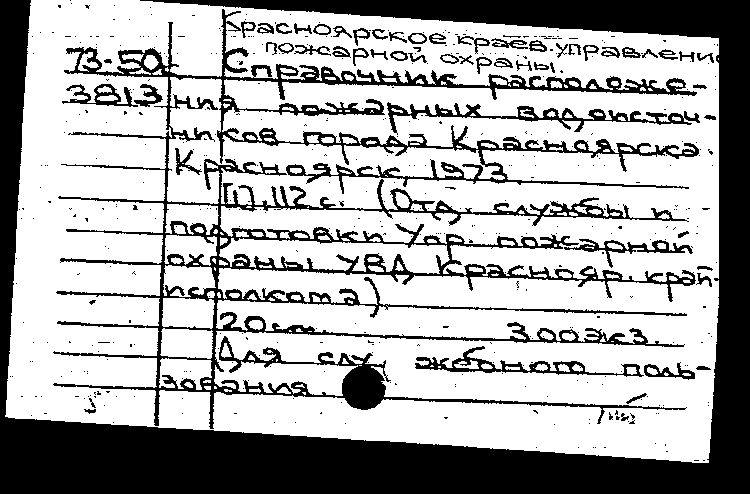 Красноярское краев. управление
пожарной охраны.
73-50- Справочник расположе-
3813 ния пожарных водоисточ-
ников города Красноярска.
Красноярск, 1973.
[1], 112 с. (Отд. службы и
подготовки Упр. пожарной
охраны УВД Краснояр. край-
исполкома)
20 см. 300 экз.
Для служебного поль-
зования